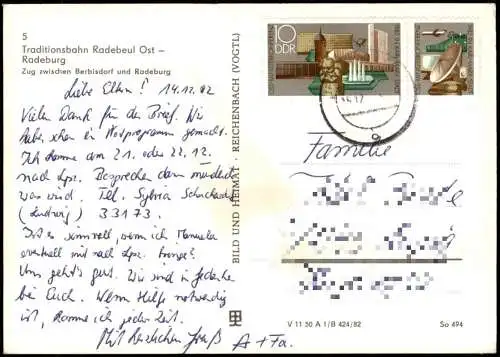 5
Traditionsbahn Radebeul Ost –
Radeburg
Zug zwischen Berbisdorf und Radeburg
Liebe Eltern! 14.12.82
Vielen Dank für den Brief. Wir
haben schon ein Notprogramm gemacht.
Ich komme am 21. oder 22.12.
nach Lpz. Besprechen dann mündlich
was wird. Tel. Sylvia
(Ludwig) 33173.
Ist es sinnvoll, wenn ich Manuela
eventuell mit nach Lpz. bringe?
Uns geht's gut. Wir sind in Gedanken
bei Euch. Wenn Hilfe notwendig
ist, komme ich jeder Zeit.
Mit herzlichem Gruß A +
BILD UND HEIMAT · REICHENBACH (VOGTL)
10
DDR
Familie
V 11 50 A 1/B 424/82
So 494